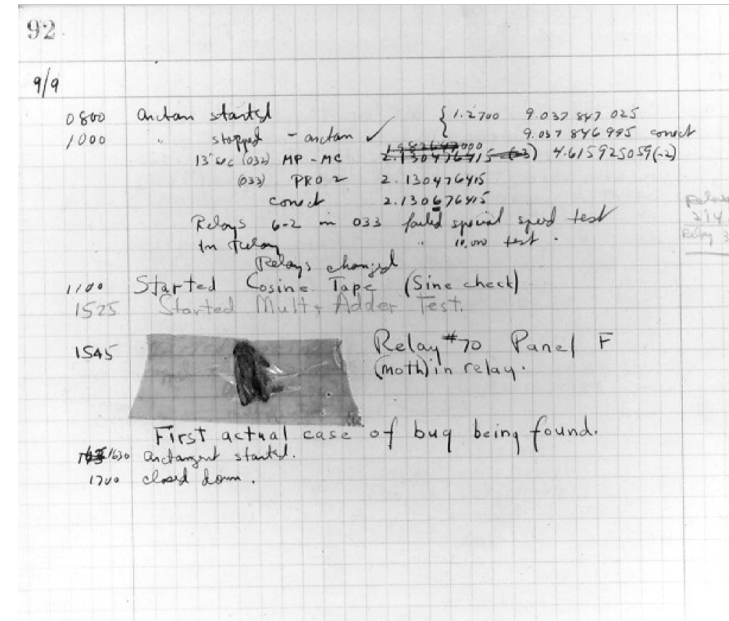 92
9/9
0800 arctan started { 1.2700 9.037 847 025
1000 " stopped - arctan ✓ 9.037 846 995 correct
(032) MP - MC 2.130476415 (-3) 4.615925059(-2)
(033) PRO 2 2.130476415
correct 2.130676415
Relays 6-2 in 033 failed special speed test
In Relay " 10.000 test.
Relay
214
Relay 3
Relays changed
1100 Started Cosine Tape (Sine check)
1525 Started Mult + Adder Test.
1545 Relay #70 Panel F
(moth) in relay.
First actual case of bug being found.
1630 arctangent started.
1700 closed down.